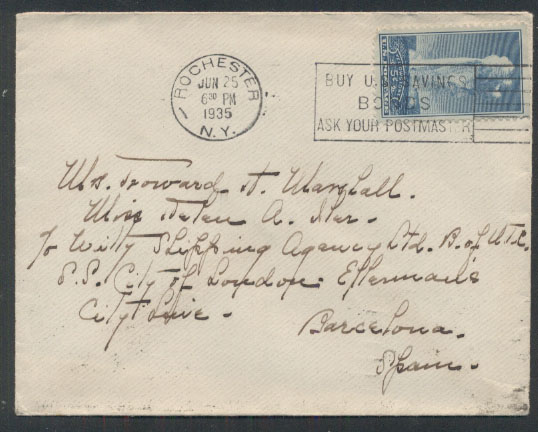 ROCHESTER
JUN 25
6 30 PM
1935
N.Y.
BUY U.S. SAVINGS
BONDS
ASK YOUR POSTMASTER
Howard H. Marshall.
Miss Helen A.
℅ Witty Shipping Agency Ltd.
S.S. City of London. Ellerman's
City Line.
Barcelona.
Spain.